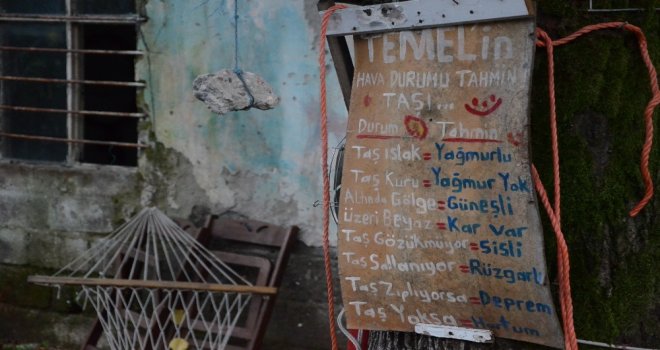 TEMEL'in
HAVA DURUMU TAHMİN
TAŞI...
Durum Tahmin
Taş ıslak = Yağmurlu
Taş Kuru = Yağmur Yok
Altında Gölge = Güneşli
Üzeri Beyaz = Kar var
Taş Gözükmüyor = Sisli
Taş Sallanıyor = Rüzgarlı
Taş Zıplıyorsa = Deprem
Taş Yoksa = Hortum